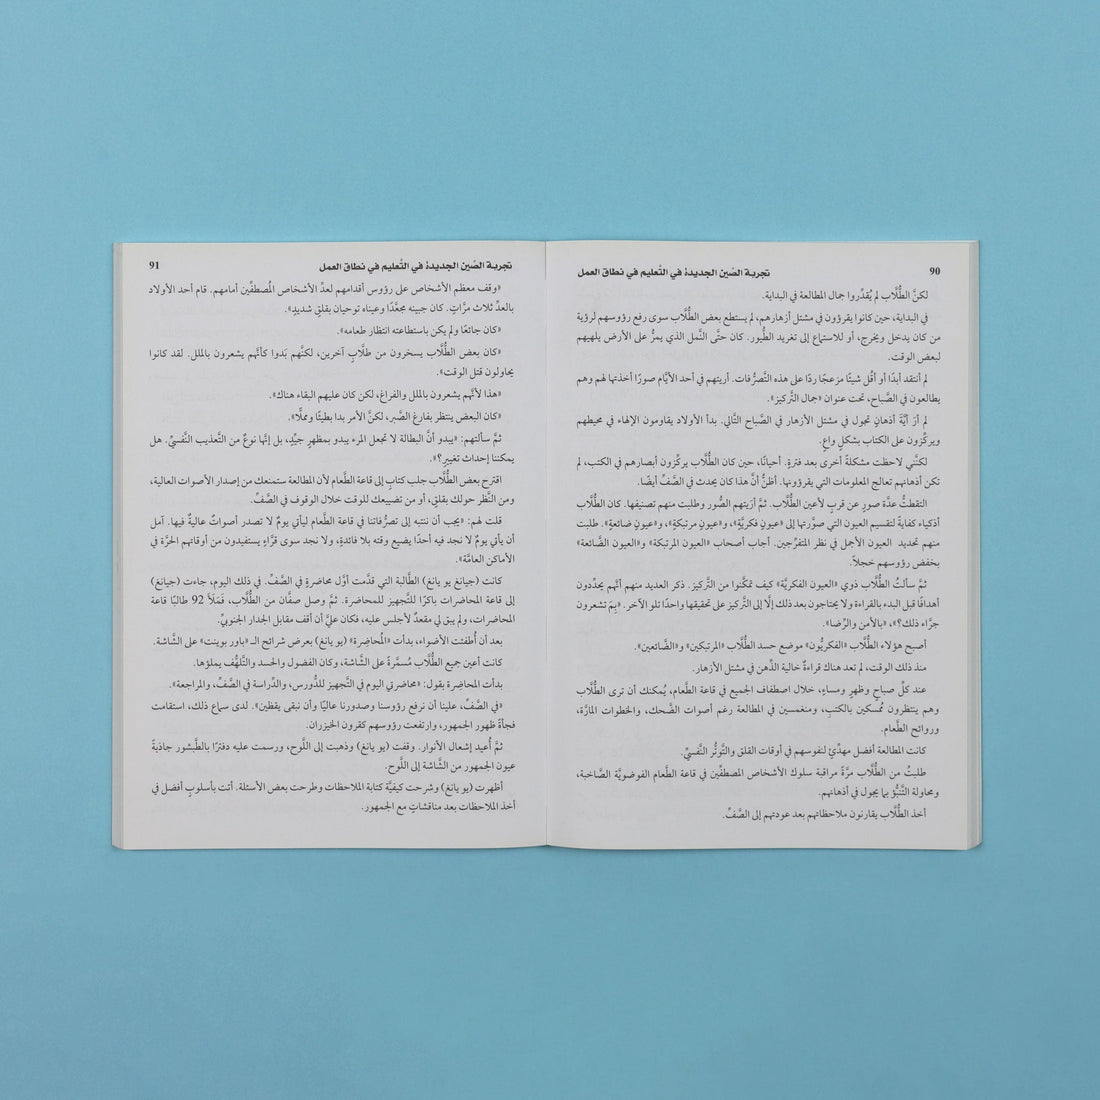 90 تجربة الصّين الجديدة في التّعليم في نطاق العمل
لكنَّ الطُّلَّاب لم يُقدِّروا جمال المطالعة في البداية.
في البداية، حين كانوا يقرؤون في مشتل أزهارهم، لم يستطع بعض الطُّلَّاب سوى رفع رؤوسهم لرؤية
من كان يدخل ويخرج، أو للاستماع إلى تغريد الطُّيور. كان حتَّى النَّمل الذي يمرُّ على الأرض يلهيهم
لبعض الوقت.
لم أنتقد أبدًا أو أقُل شيئًا مزعجًا ردًا على هذه التَّصرُّفات. أريتهم في أحد الأيَّام صورًا أخذتها لهم وهم
يطالعون في الصَّباح، تحت عنوان «جمال التَّركيز».
لم أرَ أيَّة أذهانٍ تجول في مشتل الأزهار في الصَّباح التَّالي. بدأ الأولاد يقاومون الإلهاء في محيطهم
ويركِّزون على الكتاب بشكلٍ واعٍ.
لكنَّني لاحظت مشكلةً أخرى بعد فترةٍ. أحيانًا، حين كان الطُّلَّاب يركِّزون أبصارهم في الكتب، لم
تكن أذهانهم تعالج المعلومات التي يقرؤونها. أظنُّ أنَّ هذا كان يحدث في الصَّفِّ أيضًا.
التقطتُ عدَّة صورٍ عن قربٍ لأعين الطُّلَّاب. ثمَّ أرَيتهم الصُّور وطلبت منهم تصنيفها. كان الطُّلَّاب
أذكياء كفايةً لتقسيم العيون التي صوَّرتها إلى «عيونٍ فكريَّةٍ»، و«عيونٍ مرتبكةٍ»، و«عيونٍ ضائعةٍ». طلبت
منهم تحديد العيون الأجمل في نظر المتفرِّجين. أجاب أصحاب «العيون المرتبكة» و«العيون الضَّائعة»
بخفض رؤوسهم خجلاً.
ثمَّ سألتُ الطُّلَّاب ذوي «العيون الفكريَّة» كيف تمكَّنوا من التَّركيز. ذكر العديد منهم أنَّهم يحدِّدون
أهدافًا قبل البدء بالقراءة ولا يحتاجون بعد ذلك إلَّا إلى التَّركيز على تحقيقها واحدًا تلو الآخر. «بِمَ تشعرون
جرَّاء ذلك؟»، «بالأمن والرِّضا».
أصبح هؤلاء الطُّلَّاب «الفكريُّون» موضع حسد الطُّلَّاب «المرتبكين» و«الضَّائعين».
منذ ذلك الوقت، لم تعد هناك قراءةٌ خالية الذِّهن في مشتل الأزهار.
عند كلِّ صباحٍ وظهرٍ ومساءٍ، خلال اصطفاف الجميع في قاعة الطَّعام، يُمكنك أن ترى الطُّلَّاب
وهم ينتظرون مُمسكين بالكتب، ومنغمسين في المطالعة رغم أصوات الضَّحك، والخطوات المارَّة،
وروائح الطَّعام.
كانت المطالعة أفضل مهدِّئٍ لنفوسهم في أوقات القلق والتَّوتُّر النَّفسيِّ.
طلبتُ من الطُّلَّاب مرَّةً مراقبة سلوك الأشخاص المصطفِّين في قاعة الطَّعام الفوضويَّة الصَّاخبة،
ومحاولة التَّنبُّؤ بما يجول في أذهانهم.
أخذ الطُّلَّاب يقارنون ملاحظاتهم بعد عودتهم إلى الصَّفِّ.
تجربة الصّين الجديدة في التّعليم في نطاق العمل 91
«وقف معظم الأشخاص على رؤوس أقدامهم لعدِّ الأشخاص المُصطفِّين أمامهم. قام أحد الأولاد
بالعدِّ ثلاث مرَّاتٍ. كان جبينه مجعَّدًا وعيناه توحيان بقلقٍ شديدٍ».
«كان جائعًا ولم يكن باستطاعته انتظار طعامه».
«كان بعض الطُّلَّاب يسخرون من طلَّابٍ آخرين، لكنَّهم بَدوا كأنَّهم يشعرون بالملل. لقد كانوا
يحاولون قتل الوقت».
«هذا لأنَّهم يشعرون بالملل والفراغ، لكن كان عليهم البقاء هناك».
«كان البعض ينتظر بفارغ الصَّبر، لكنَّ الأمر بدا بطيئًا ومملًّا».
ثمَّ سألتهم: «يبدو أنَّ البطالة لا تجعل المرء يبدو بمظهرٍ جيِّدٍ، بل إنَّها نوعٌ من التَّعذيب النَّفسيِّ. هل
يمكننا إحداث تغييرٍ؟».
اقترح بعض الطُّلَّاب جلب كتابٍ إلى قاعة الطَّعام لأن المطالعة ستمنعك من إصدار الأصوات العالية،
ومن النَّظر حولك بقلقٍ، أو من تضييعك للوقت خلال الوقوف في الصَّفِّ.
قلت لهم: «يجب أن ننتبه إلى تصرُّفاتنا في قاعة الطَّعام ليأتي يومٌ لا تصدر أصواتٌ عاليةٌ فيها. آمل
أن يأتي يومٌ لا نجد فيه أحدًا يضيع وقته بلا فائدةٍ، ولا نجد سوى قرَّاءٍ يستفيدون من أوقاتهم الحرَّة في
الأماكن العامَّة».
كانت (جيانغ يو يانغ) الطَّالبة التي قدَّمت أوَّل محاضرةٍ في الصَّفِّ. في ذلك اليوم، جاءت (جيانغ)
إلى قاعة المحاضرات باكرًا للتَّجهيز للمحاضرة. ثمَّ وصل صفَّان من الطُّلَّاب، فَمَلَأَ 92 طالبًا قاعة
المحاضرات، ولم يبق لي مقعدٌ لأجلس عليه، فكان عليَّ أن أقف مقابل الجدار الجنوبيِّ.
بعد أن أُطفئت الأضواء، بدأت «المُحاضِرة» (يو يانغ) بعرض شرائح الـ «باور بوينت» على الشَّاشة.
كانت أعين جميع الطُّلَّاب مُسمَّرةً على الشَّاشة، وكان الفضول والحسد والتَّلهُّف يملؤها.
بدأت المحاضِرة بقول: «محاضرتي اليوم في التَّجهيز للدُّورس، والدِّراسة في الصَّفِّ، والمراجعة».
«في الصَّفِّ، علينا أن نرفع رؤوسنا وصدورنا عاليًا وأن نبقى يقظين». لدى سماع ذلك، استقامت
فجأةً ظهور الجمهور، وارتفعت رؤوسهم كقرون الخيزران.
ثمَّ أُعيد إشعال الأنوار. وقفت (يو يانغ) وذهبت إلى اللَّوح، ورسمت عليه دفترًا بالطَّبشور جاذبةً
عيون الجمهور من الشَّاشة إلى اللَّوح.
أظهرت (يو يانغ) وشرحت كيفيَّة كتابة الملاحظات وطرحت بعض الأسئلة. أتت بأسلوبٍ أفضل في
أخذ الملاحظات بعد مناقشاتٍ مع الجمهور.